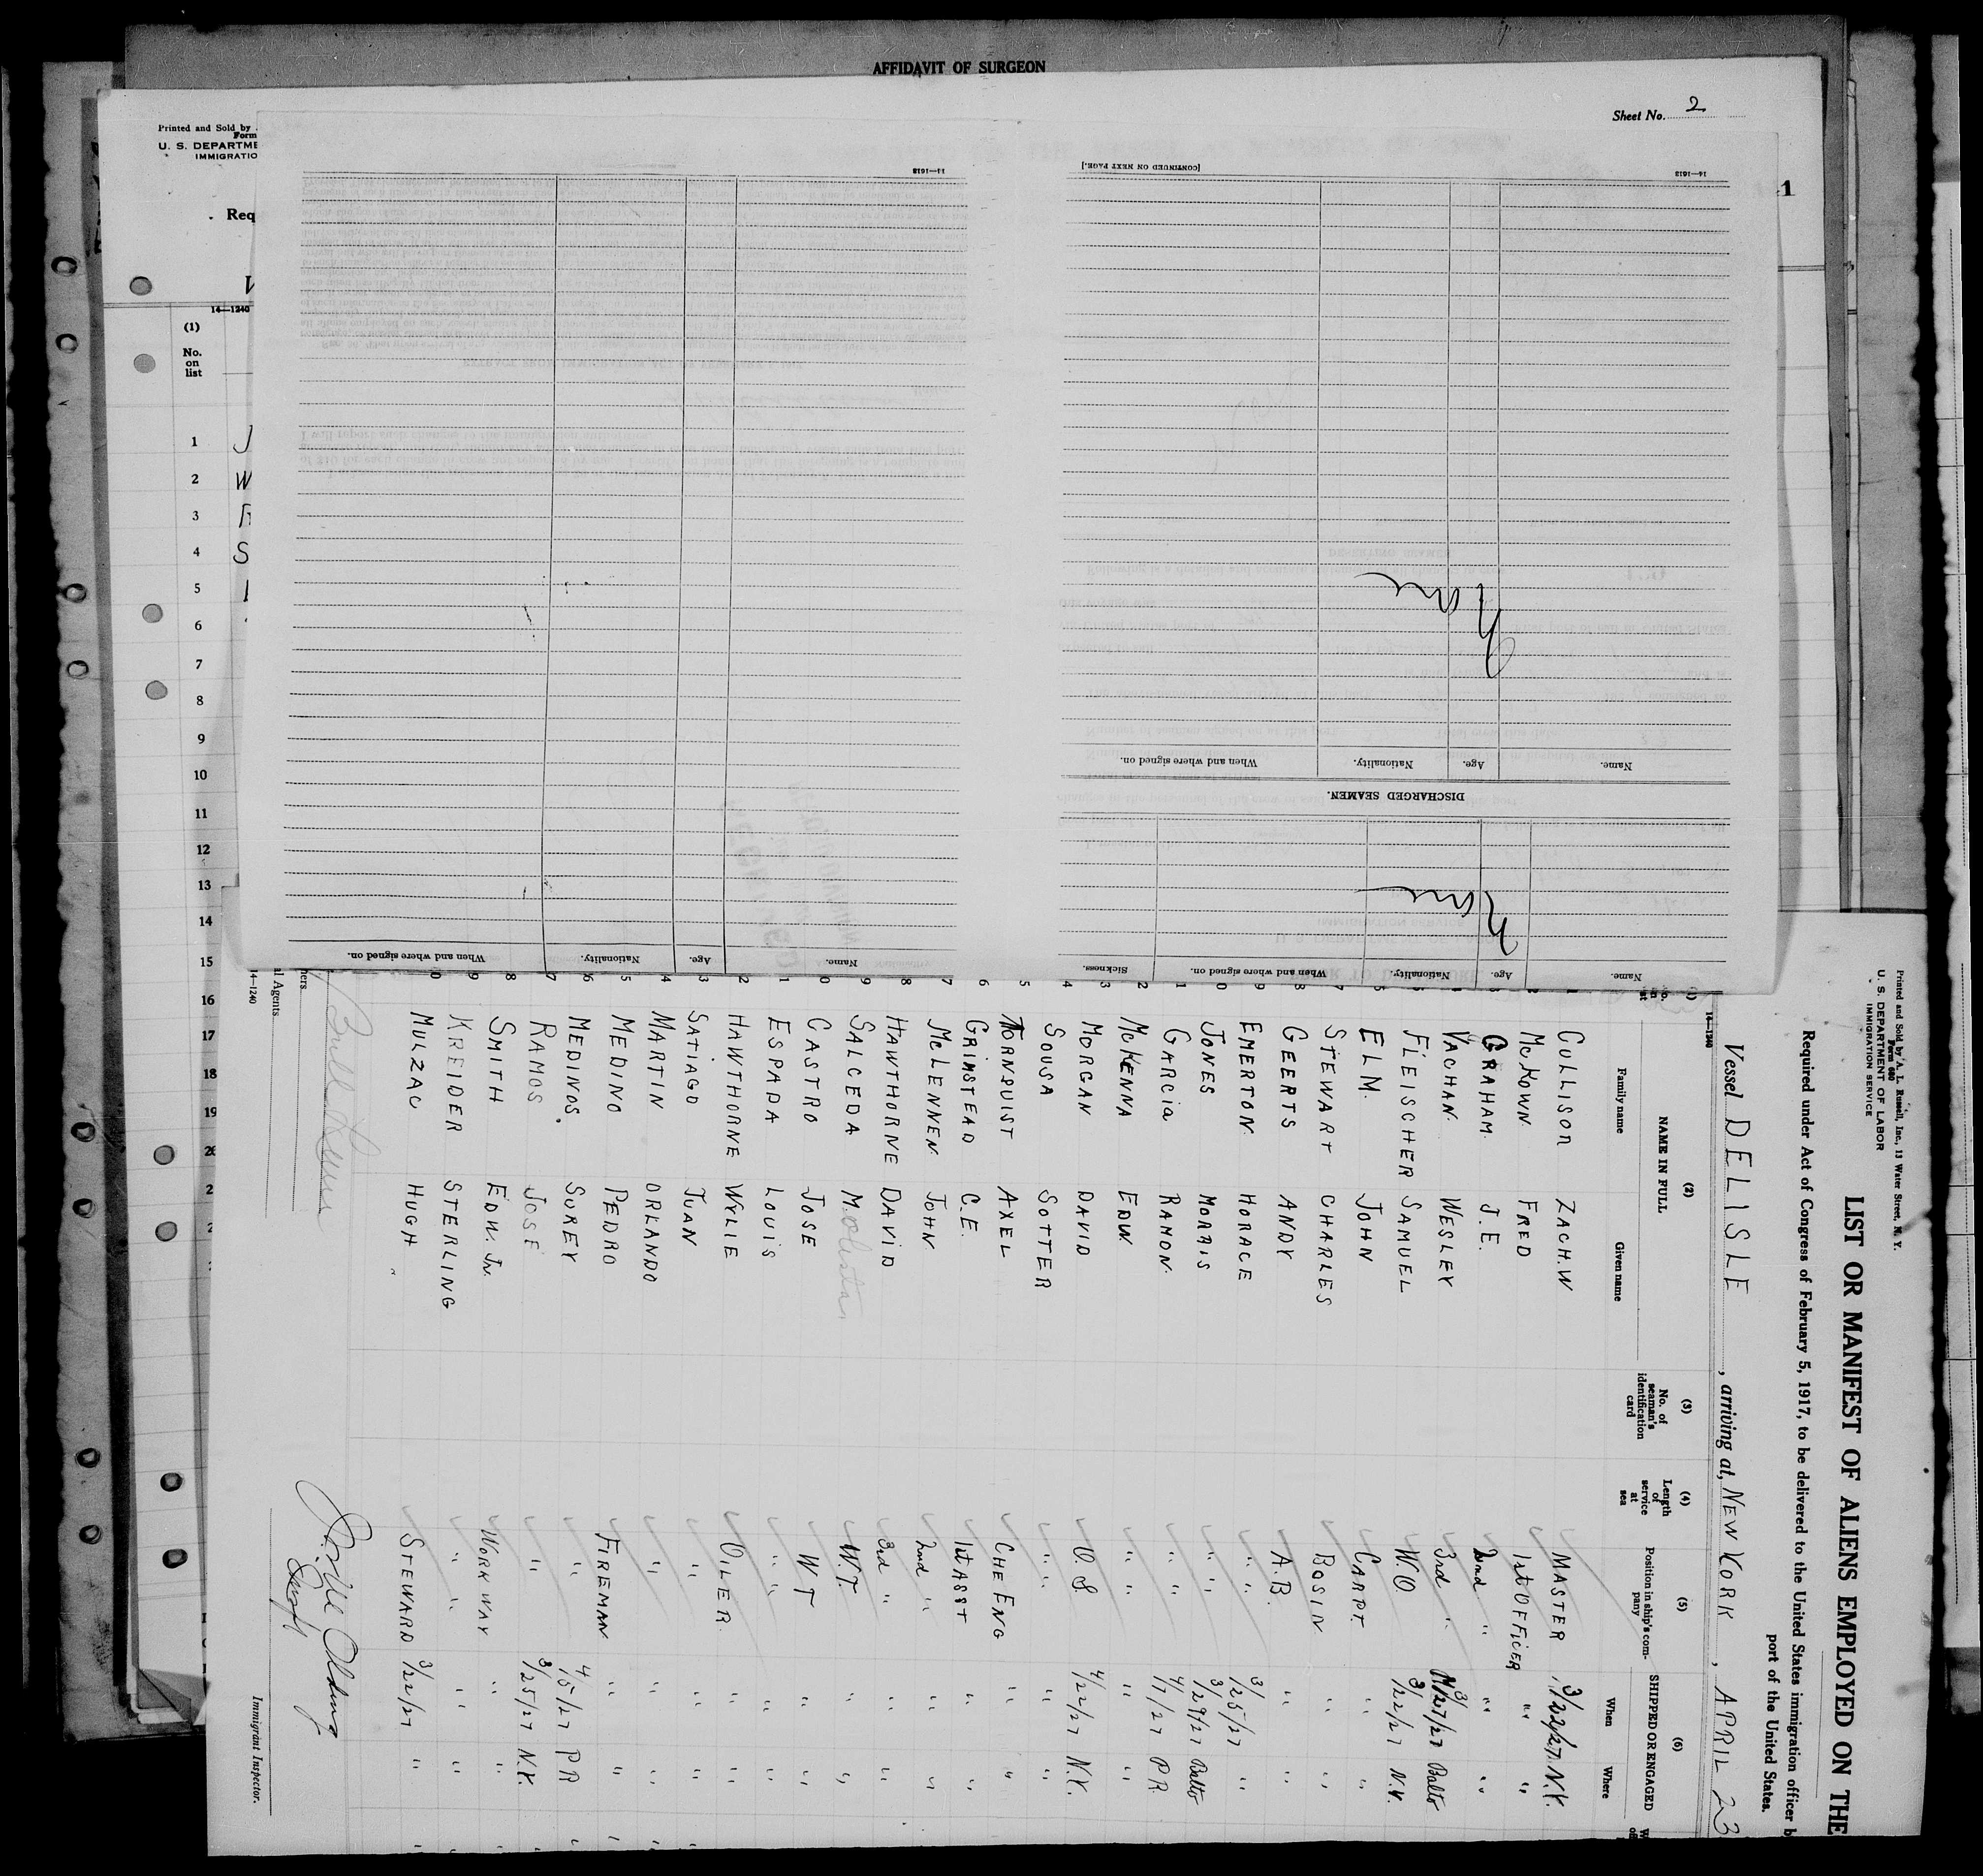 AFFIDAVIT OF SURGEON
Sheet No. 2
Printed and Sold by
Form
U. S. DEPARTME
IMMIGRATIO
Req
V
1
14—1240
(1)
No.
on
list
1 J
2 W
3
4 S
5
6
7
8
9
10
11
12
13
14
15
16
17
18
19
14—1613
[CONTINUED ON NEXT PAGE.]
14—1613
Name. Age. Nationality. When and where signed on. Sickness.
None
DISCHARGED SEAMEN.
Name. Age. Nationality. When and where signed on.
None
Name. Age. Nationality. When and where signed on.
Printed and Sold by A. L. Russell, Inc., 13 Water Street, N. Y.
Form 680
U. S. DEPARTMENT OF LABOR
IMMIGRATION SERVICE
LIST OR MANIFEST OF ALIENS EMPLOYED ON THE
Required under Act of Congress of February 5, 1917, to be delivered to the United States immigration officer b
port of the United States.
Vessel DELISLE, arriving at, NEW YORK, APRIL 23
14—1240
(2) (3) (4) (5) (6)
NAME IN FULL
Family name Given name
No. of seaman's identification card
Length of service at sea
Position in ship's company
SHIPPED OR ENGAGED
When Where
CULLISON ZACH.W MASTER 3/22/27 N.Y.
McKOWN FRED 1st OFFICER " "
GRAHAM. J.E. 2nd " " "
VACHAN. WESLEY 3rd " 3/27/27 Balto
FLEISCHER SAMUEL W.O. 3/22/27 N.Y.
ELM. JOHN CARPT " "
STEWART CHARLES BOSIN " "
GEERTS ANDY A.B. " "
EMERTON. HORACE " " 3/25/27 "
JONES MORRIS " " 3/29/27 Balto
GARCIA RAMON. " " 4/7/27 PR
McKENNA EDW. " " " "
MORGAN DAVID O.S 4/22/27 N.Y.
SOUSA SOTTER " " " "
TORNQUIST AXEL CHE ENG " "
GRINSTEAD C.E. 1st ASST " "
McLENNEN JOHN 2nd " " "
HAWTHORNE DAVID 3rd " " "
SALCEDA M. W.T. " "
CASTRO JOSE WT " "
ESPADA LOUIS " " " "
HAWTHORNE WYLIE OILER. " "
SATIAGO JUAN " " "
MARTIN ORLANDO " " "
MEDINO PEDRO FIREMAN " "
MEDINOS. SUREY " 4/5/27 PR
RAMOS JOSE " 3/25/27 N.Y.
SMITH EDW. Jr. WORKWAY " "
KREIDER STERLING " " "
MULZAC HUGH STEWARD 3/22/27 "
14—1240
al Agents
ners
Bull
Immigrant Inspector.